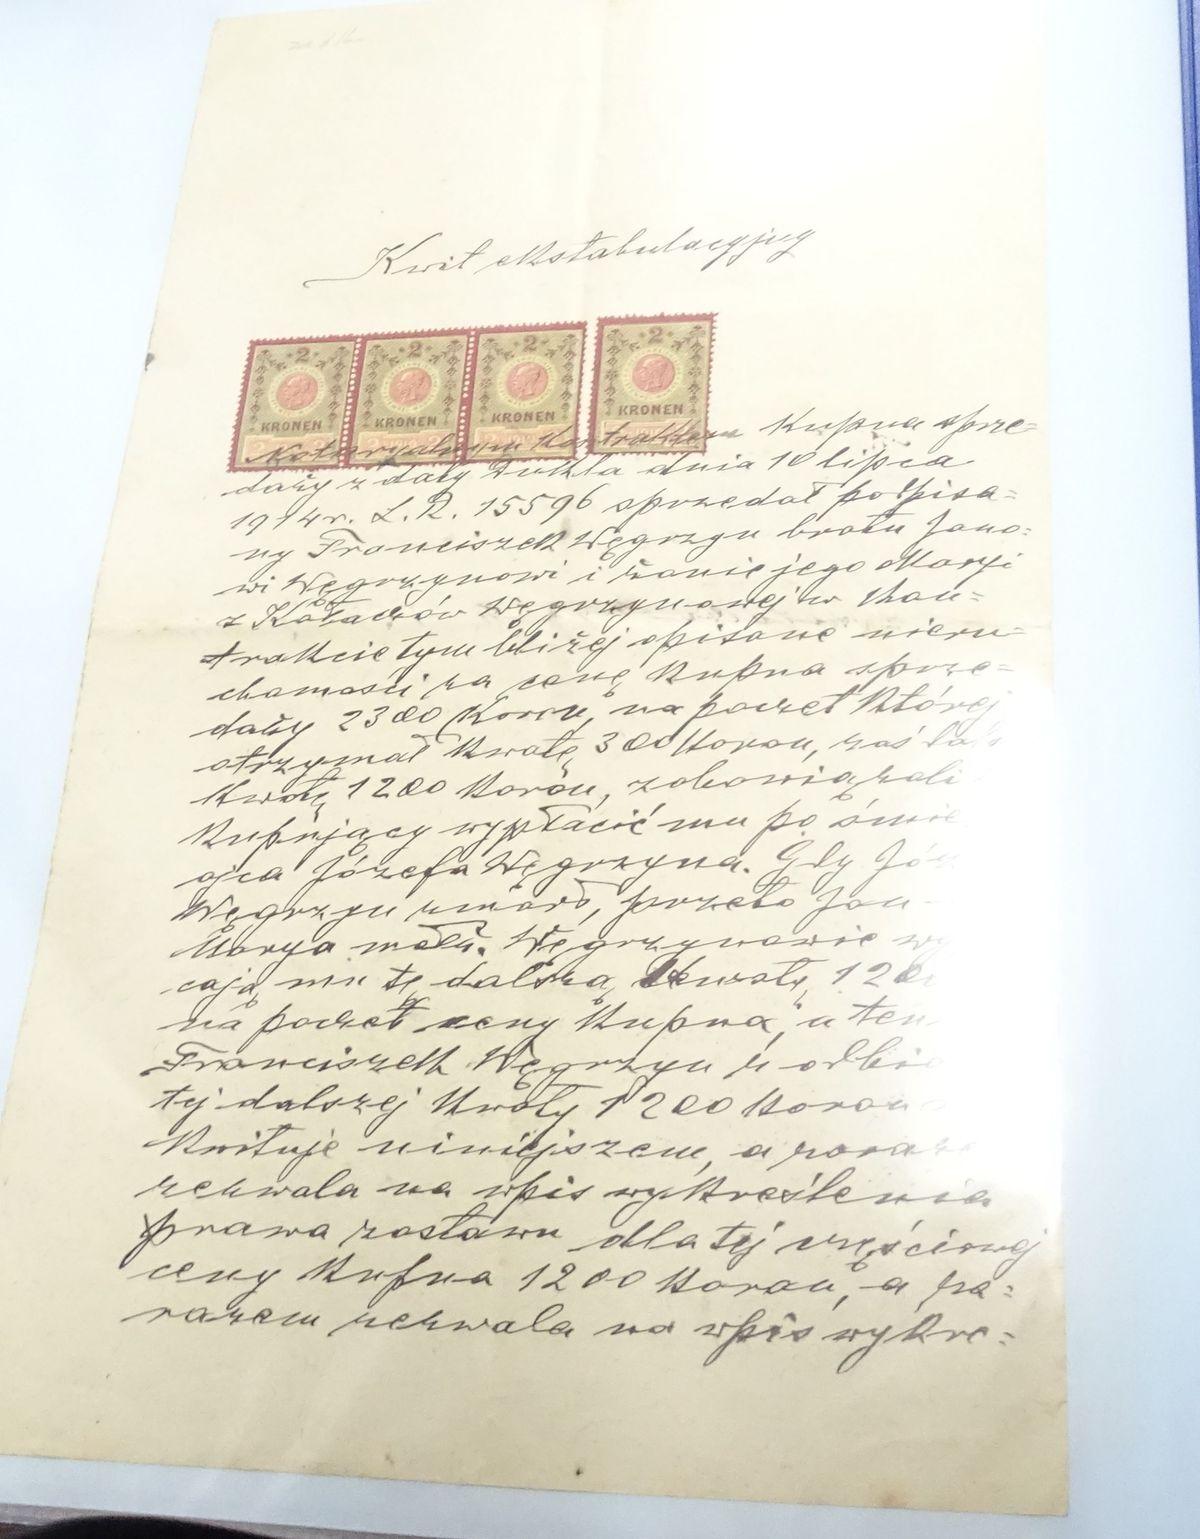 Kwit ekstabulacyjny
2 2 2 2
KRONEN KRONEN KRONEN KRONEN
Notaryalnym Kontraktem Kupna sprze-
daży z daty Dukla dnia 10 lipca
1914 r. L. R. 15596 sprzedał podpisa=
ny Franciszek Węgrzyn bratu Jano=
wi Węgrzynowi i żonie jego Maryi
z Kołaczów Węgrzynowej w Kon=
trakcie tym bliżej opisane nieru=
chomości za cenę Kupna sprze=
daży 2300 Koron, na poczet Której
otrzymał Kwotę 300 Koron, zaś
Kwotę 1200 Koron, zobowiązali
Kupujący wypłacić mu po
ojca Józefa Węgrzyna. Gdy
Węgrzyn zmarł, przeto Jan
Marya małż. Węgrzynowie
cają mu tę dalszą Kwotę
na poczet ceny Kupna, a ten
Franciszek Węgrzyn z
tej dalszej Kwoty 1200 Koron
Kwituje niniejszem, a
zezwala na wpis wykreślenia
prawa zastawu dla tej częściowej
ceny Kupna 1200 Koron, a za=
razem zezwala na wpis wykre=